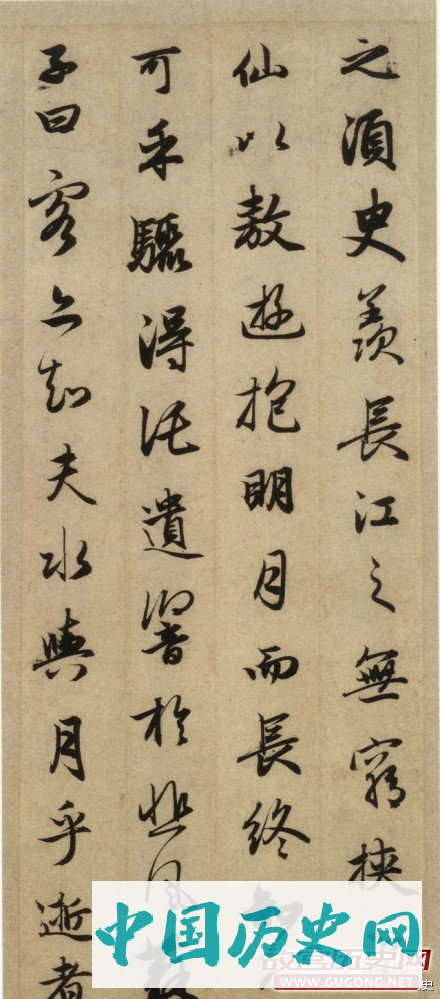 之須臾羨長江之無窮挾
仙以敖遊抱明月而長終
可乎驟得託遺響於悲風蘇
子曰客亦知夫水與月乎逝者
中国历史网
故宫历史网
WWW.GUGONG.NET
史